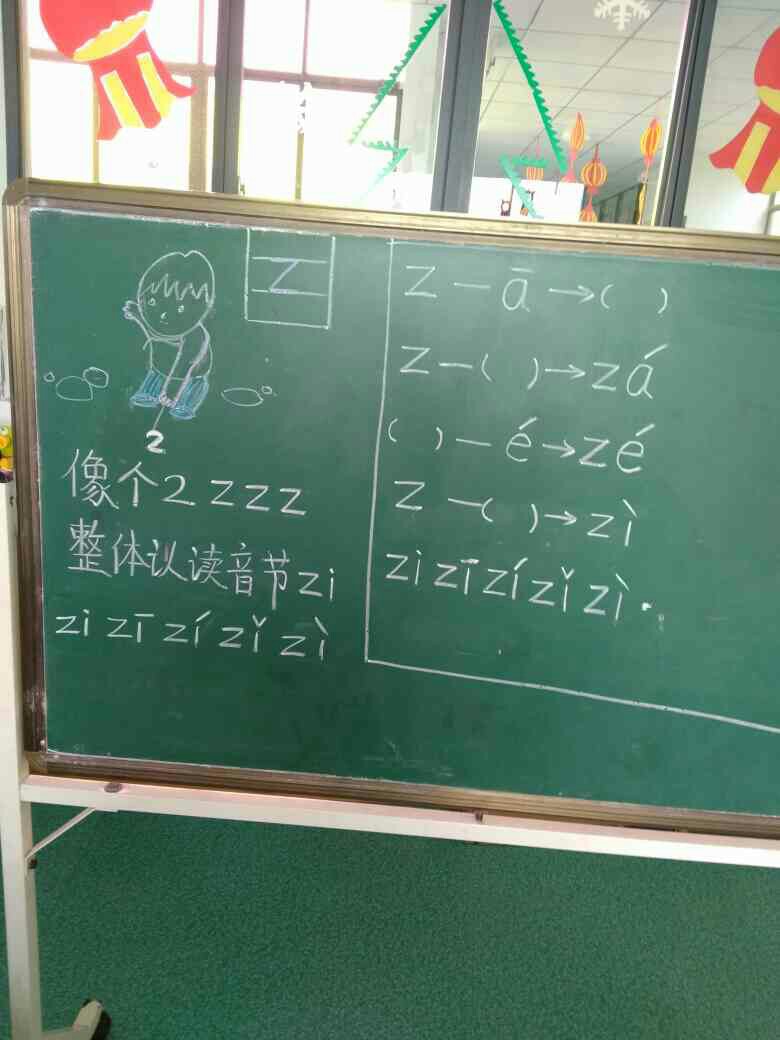 z
2
像个2 z z z
整体认读音节zi
zi zī zí zǐ zì
z — ā → ( )
z — ( ) → zá
( ) — é → zé
z — ( ) → zì
zi zī zí zǐ zì.